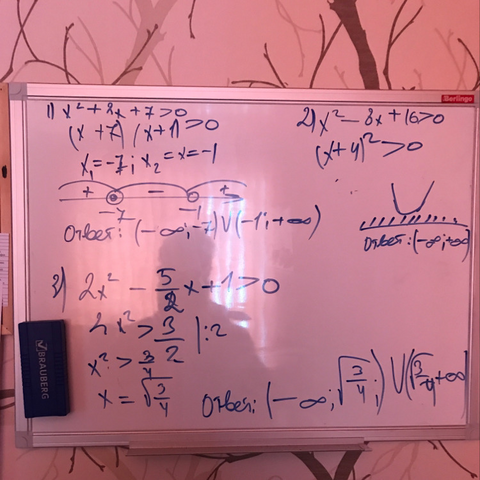 1) x² + 8x + 7 > 0
(x + 7) (x + 1) > 0
x₁ = -7; x₂ = x = -1
+ - +
-7 -1
Ответ: (-∞; -7) ∪ (-1; +∞)
Berlingo
2) x² - 8x + 16 > 0
(x + 4)² > 0
Ответ: (-∞; +∞)
3) 2x² - 5/2 x + 1 > 0
2x² > 3/2 | : 2
x² > 3/4
x = √3/4
Ответ: (-∞; √3/4;) ∪ (√3/4 + ∞
BRAUBERG